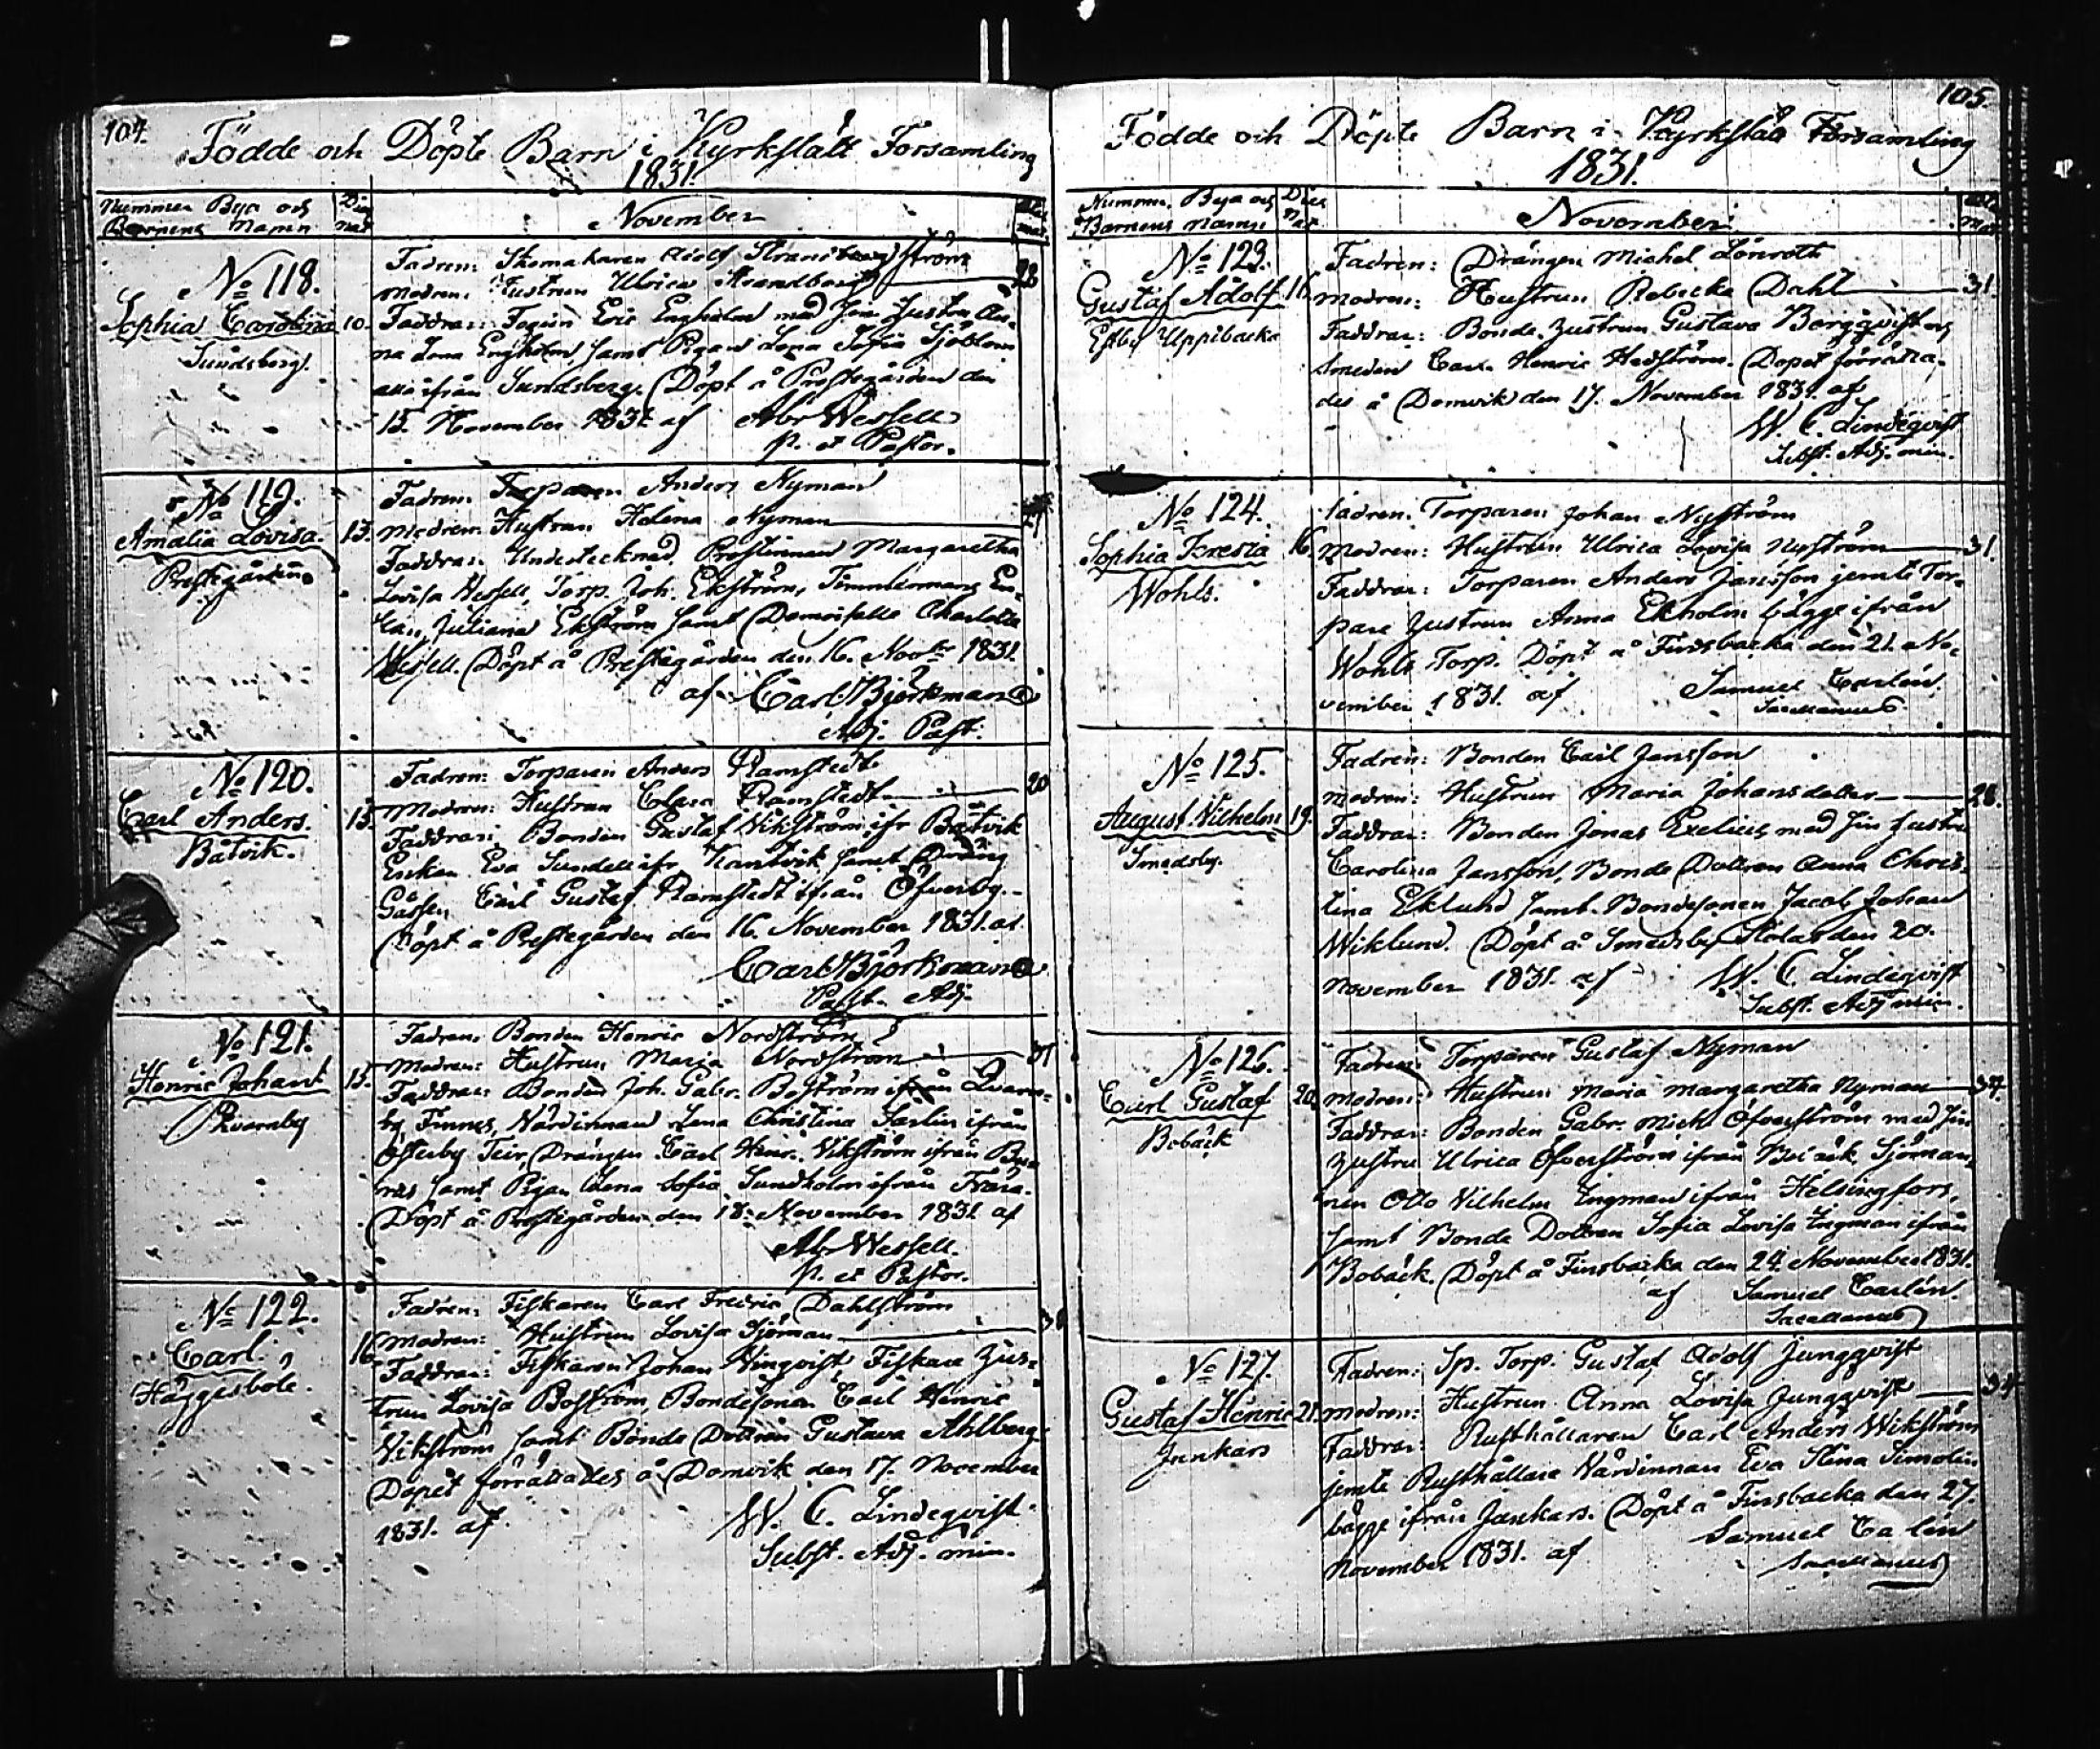 104.
Födde och Döpte Barn i Kyrkslätt Forsamling
1831.
Nummer Bya och Barnens Namn
November
No 118.
Sophia Carolina 10.
Sundsberg.
Fadren: Skomakaren Adolf Strandberg Ström
Modren: Hustrun Ulrica Strandberg 28
Faddrar: Eric Engholm med sin Hustru An-
na Lena Engholm, samt Pigan Lena Sofia Sjöblom
alla ifrån Sundsberg. Döpt å Prestegården den
15. November 1831 af Abr Wessell
p. et Pastor.
No 119.
Amalia Lovisa. 13.
Prestegården
Fadren: Torparen Anders Nyman
Modren: Hustrun Helena Nyman
Faddrar: Undertecknad, Prostinnan Margaretha
Lovisa Wessell, Torp. Joh. Ekström, Timmermans En-
kan Juliana Ekström samt Demoiselle Charlotta
Wessell. Döpt å Prestegården den 16. Novbr 1831.
af Carl Björkman
Adj. Past.
No 120.
Carl Anders. 15.
Båtvik.
Fadren: Torparen Anders Ramstedt
Modren: Hustrun Clara Ramstedt 20
Faddrar: Bonden Gustaf Wikström ifr Båtvik
Enkan Eva Sundell ifr Kantvik samt Dräng
Gossen Carl Gustaf Ramstedt ifrån Öfverby.
Döpt å Prestegården den 16. November 1831. af
Carl Björkman
Past. Adj.
No 121.
Henric Johan 15.
Qvarnby
Fadren: Bonden Henric Nordström
Modren: Hustrun Maria Nordström 31
Faddrar: Bonden Joh. Gabr. Boström ifrån Qvarn-
by Finnes, Värdinnan Lena Christina Sarlin ifrån
Österby Teir, Drängen Carl Henr. Wikström ifrån
samt Pigan Lena Sofia Sundholm ifrån
Döpt å Prestegården den 18. November 1831 af
Abr Wessell.
p. et Pastor.
No 122.
Carl. 16
Häggesböle.
Fadren: Fiskaren Carl Fredric Dahlström
Modren: Hustrun Lovisa Sjöman
Faddrar: Fiskaren Johan Winqvist, Fiskare Hus-
trun Lovisa Boström, Bondesonen Carl Henric
Wikström samt Bonde Dottren Gustava Ahlberg
Döpet förrättades å Domvik den 17. November
1831. af W. C. Lindeqvist
Subst. Adj. min.
105.
Födde och Döpte Barn i Kyrkslätt Forsamling
1831.
Nummer, Bya och Barnens namn
November
No 123.
Gustaf Adolf 16.
Estby Uppibacka
Fadren: Drängen Michel Lönroth
Modren: Hustrun Rebecka Dahl 31.
Faddrar: Bonde Hustrun Gustava Bergqvist och
Smeden Carl Henric Hedström. Döpet förrätta-
des å Domvik den 17. November 1831. af
W. C. Lindeqvist
Subst. Adj. min.
No 124.
Sophia Teresia 16.
Wohls.
Fadren: Torparen Johan Nyström
Modren: Hustrun Ulrica Lovisa Nyström 31.
Faddrar: Torparen Anders Jansson jemte Tor-
pare Hustrun Anna Ekholm bägge ifrån
Wohls Torp. Döpt å Finsbacka den 21. No-
vember 1831. af Samuel Carlén
Sacellanus
No 125.
August Vilhelm 19.
Smedsby.
Fadren: Bonden Carl Jansson
Modren: Hustrun Maria Johansdotter 28.
Faddrar: Bonden Jonas Exelius med sin Hustru
Carolina Jansson, Bonde Dottren Anna Chris-
tina Eklund samt Bondesonen Jacob Johan
Wiklund. Döpt å Smedsby den 20.
November 1831. af W. C. Lindeqvist
Subst. Adj min.
No 126.
Carl Gustaf 20.
Bobäck
Fadren: Torparen Gustaf Nyman
Modren: Hustrun Maria Margaretha Nyman 37.
Faddrar: Bonden Gabr. Mich. Öfverström med sin
Hustru Ulrica Öfverström ifrån Bobäck, Sjöman-
nen Otto Vilhelm Engman ifrån Helsingfors,
samt Bonde Dottren Sofia Lovisa Ingman ifrån
Bobäck. Döpt å Finsbacka den 24. November 1831.
af Samuel Carlén.
Sacellanus
No 127.
Gustaf Henric 21.
Junkars
Fadren: Sp. Torp. Gustaf Adolf Jungqvist
Modren: Hustrun Anna Lovisa Jungqvist 34
Faddrar: Rusthållaren Carl Anders Wikström
jemte Rusthållare Värdinnan Eva Stina Simolin
bägge ifrån Junkars. Döpt å Finsbacka den 27.
November 1831. af Samuel Carlén
Sacellanus